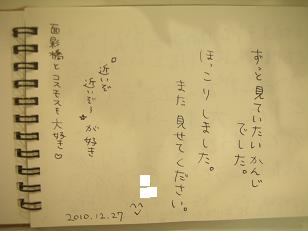 ずっと見ていたいかんじ
でした。
ほっこりしました。
また見せてください。
近いぞ
近いぞ〜が好き
面影橋とコスモスも大好き♡
2010.12.27